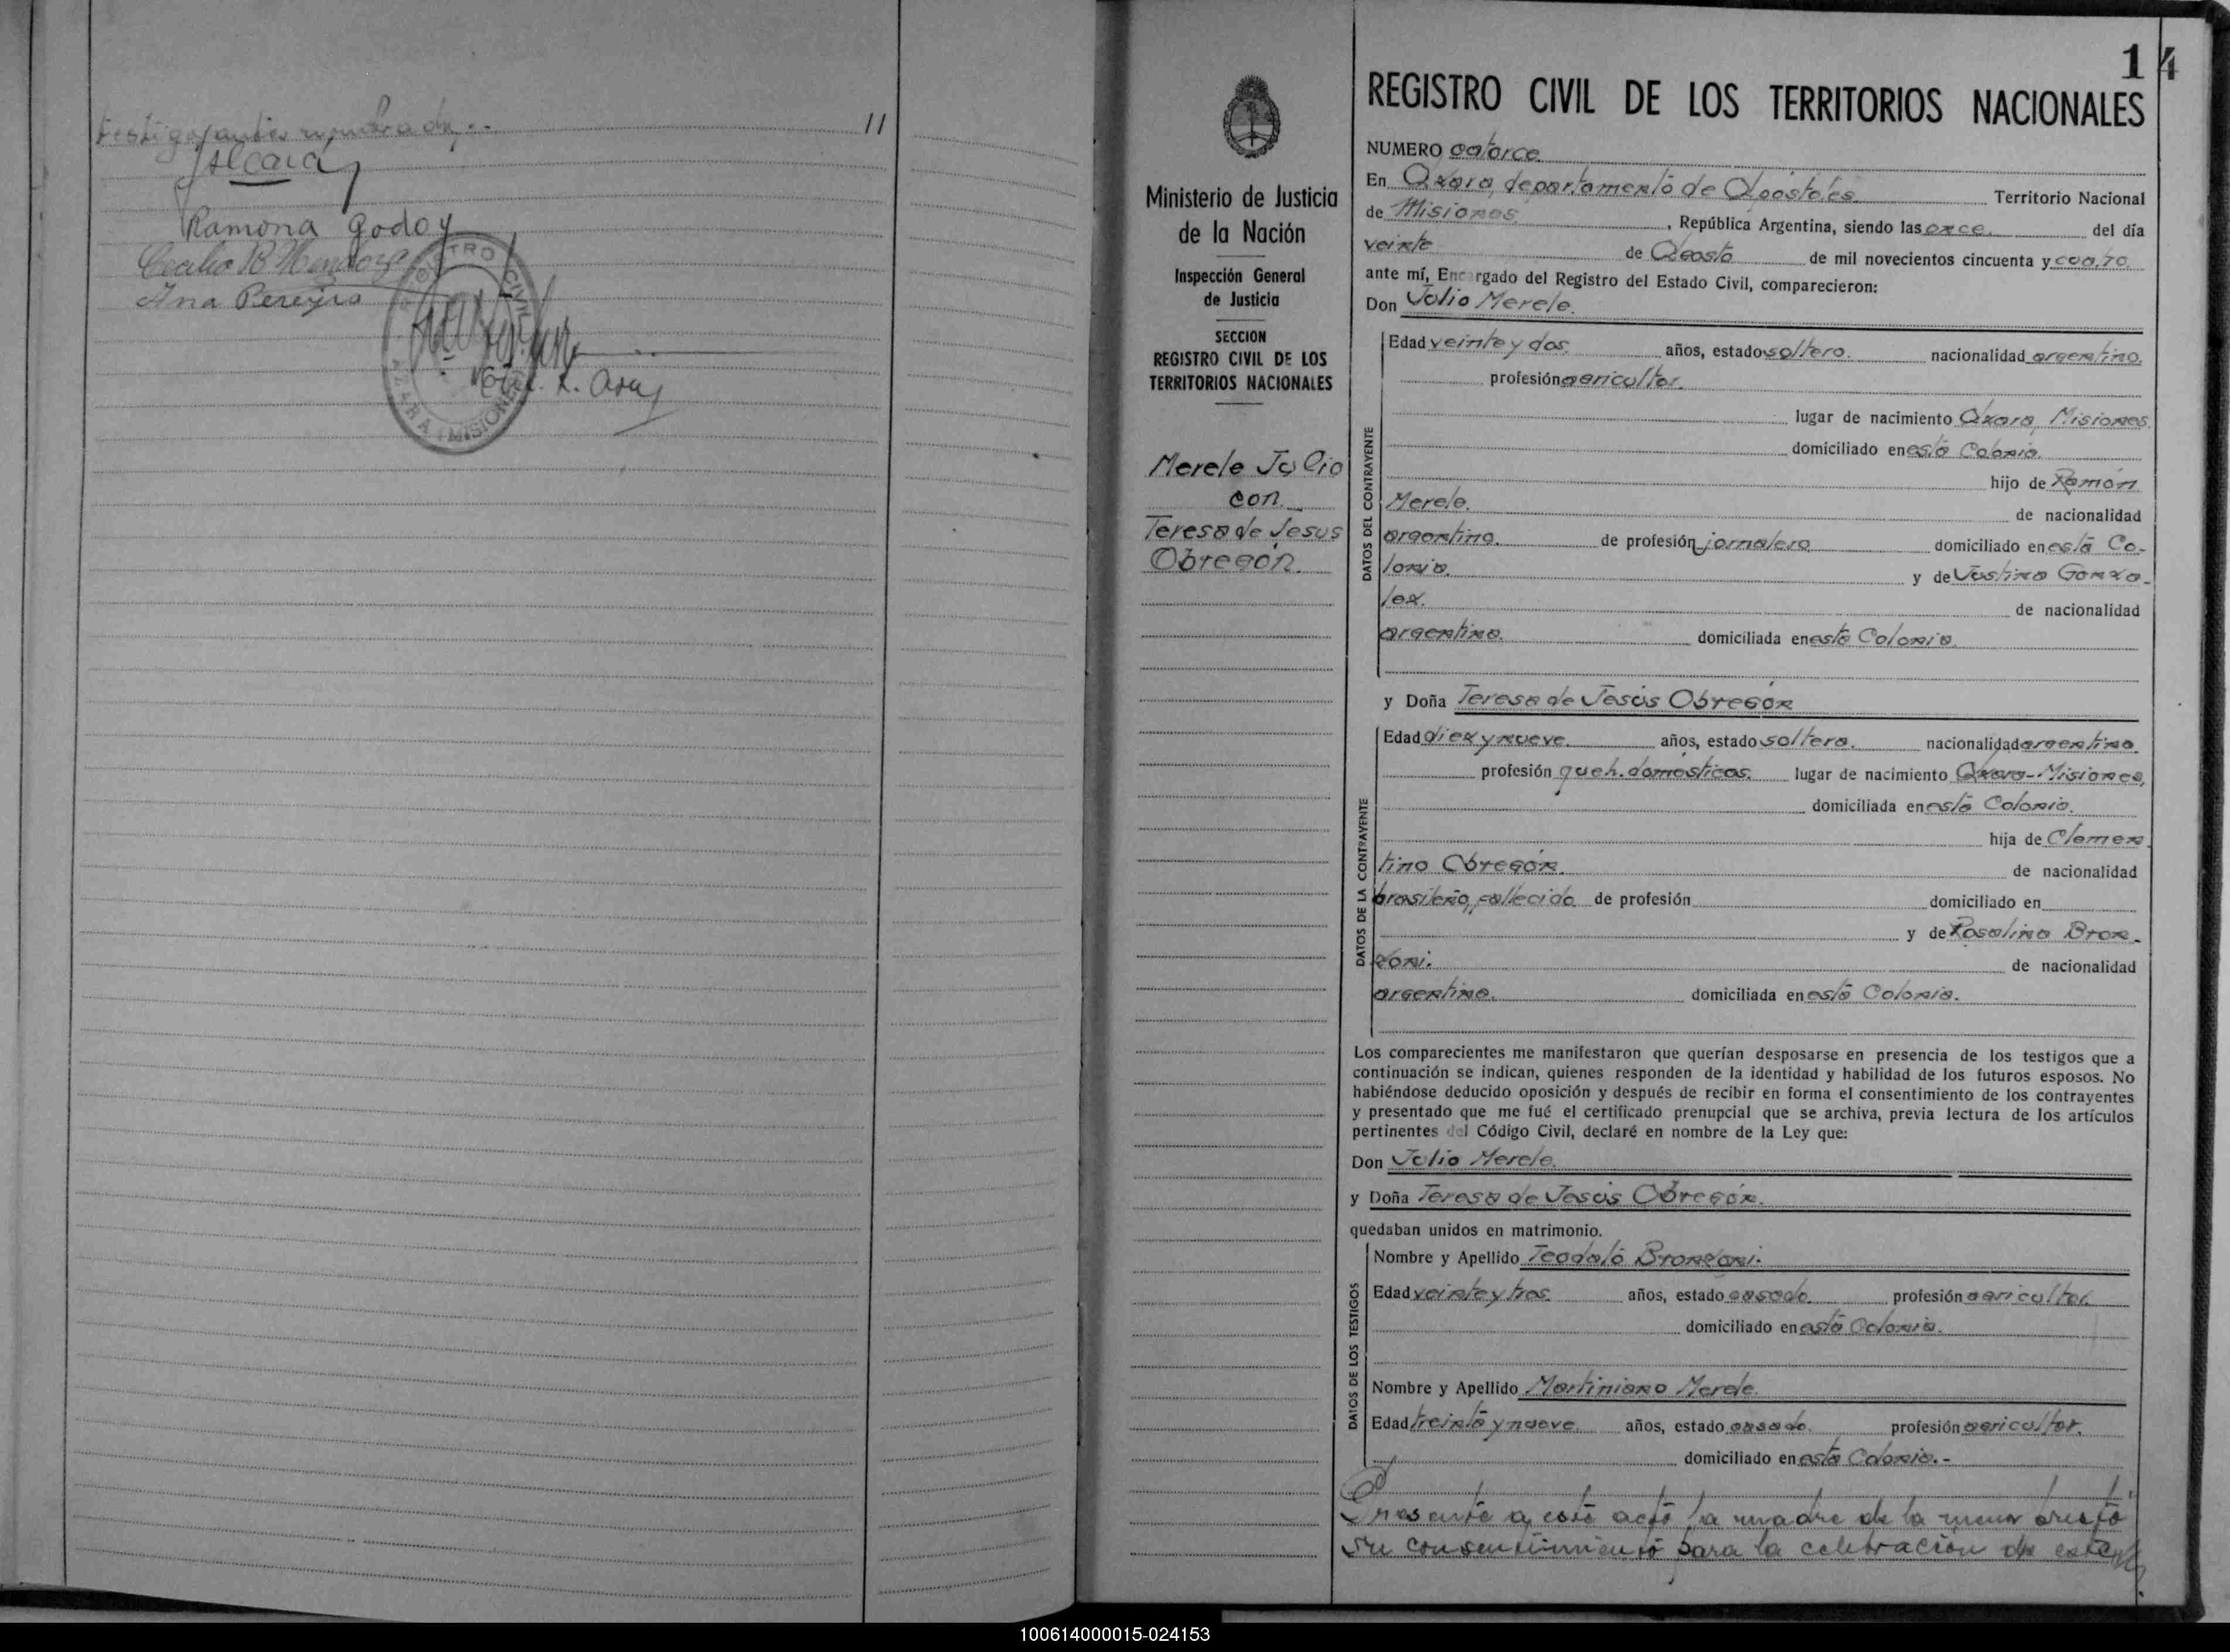 testigos antes nombrados.-
11
Ramona Godoy
Cecilio R Mendoza
Ana Pereyra
REGISTRO CIVIL
AZARA (MISIONES)
14
Ministerio de Justicia
de la Nación
Inspección General
de Justicia
SECCION
REGISTRO CIVIL DE LOS
TERRITORIOS NACIONALES
Merele Julio
con
Teresa de Jesus
Obregón.
REGISTRO CIVIL DE LOS TERRITORIOS NACIONALES
NUMERO catorce
En Azara, departamento de Apóstoles Territorio Nacional
de Misiones, República Argentina, siendo las once del día
veinte de Agosto de mil novecientos cincuenta y cuatro
ante mí, Encargado del Registro del Estado Civil, comparecieron:
Don Julio Merele.
DATOS DEL CONTRAYENTE
Edad veinte y dos años, estado soltero. nacionalidad argentina.
profesión agricultor.
lugar de nacimiento Azara, Misiones
domiciliado en esta Colonia.
hijo de Ramón
Merele. de nacionalidad
argentina. de profesión jornalero domiciliado en esta Co-
lonia. y de Justina Gonza-
lez. de nacionalidad
argentina. domiciliada en esta Colonia.
y Doña Teresa de Jesús Obregón
DATOS DE LA CONTRAYENTE
Edad diez y nueve. años, estado soltera. nacionalidad argentina.
profesión queh. domésticos. lugar de nacimiento Azara-Misiones,
domiciliada en esta Colonia.
hija de Clemen
tino Obregón. de nacionalidad
brasileño, fallecido de profesión domiciliado en
y de Rosalina Bron-
zoni. de nacionalidad
argentina. domiciliada en esta Colonia.
Los comparecientes me manifestaron que querían desposarse en presencia de los testigos que a
continuación se indican, quienes responden de la identidad y habilidad de los futuros esposos. No
habiéndose deducido oposición y después de recibir en forma el consentimiento de los contrayentes
y presentado que me fué el certificado prenupcial que se archiva, previa lectura de los artículos
pertinentes del Código Civil, declaré en nombre de la Ley que:
Don Julio Merele.
y Doña Teresa de Jesús Obregón.
quedaban unidos en matrimonio.
DATOS DE LOS TESTIGOS
Nombre y Apellido Teodoló Bronzoni.
Edad veinte y tres. años, estado casado. profesión agricultor.
domiciliado en esta Colonia.
Nombre y Apellido Martiniano Merele.
Edad treinta y nueve. años, estado casado. profesión agricultor.
domiciliado en esta Colonia.-
Presente a este acto la madre de la menor prestó
su consentimiento para la celebración de este
100614000015-024153